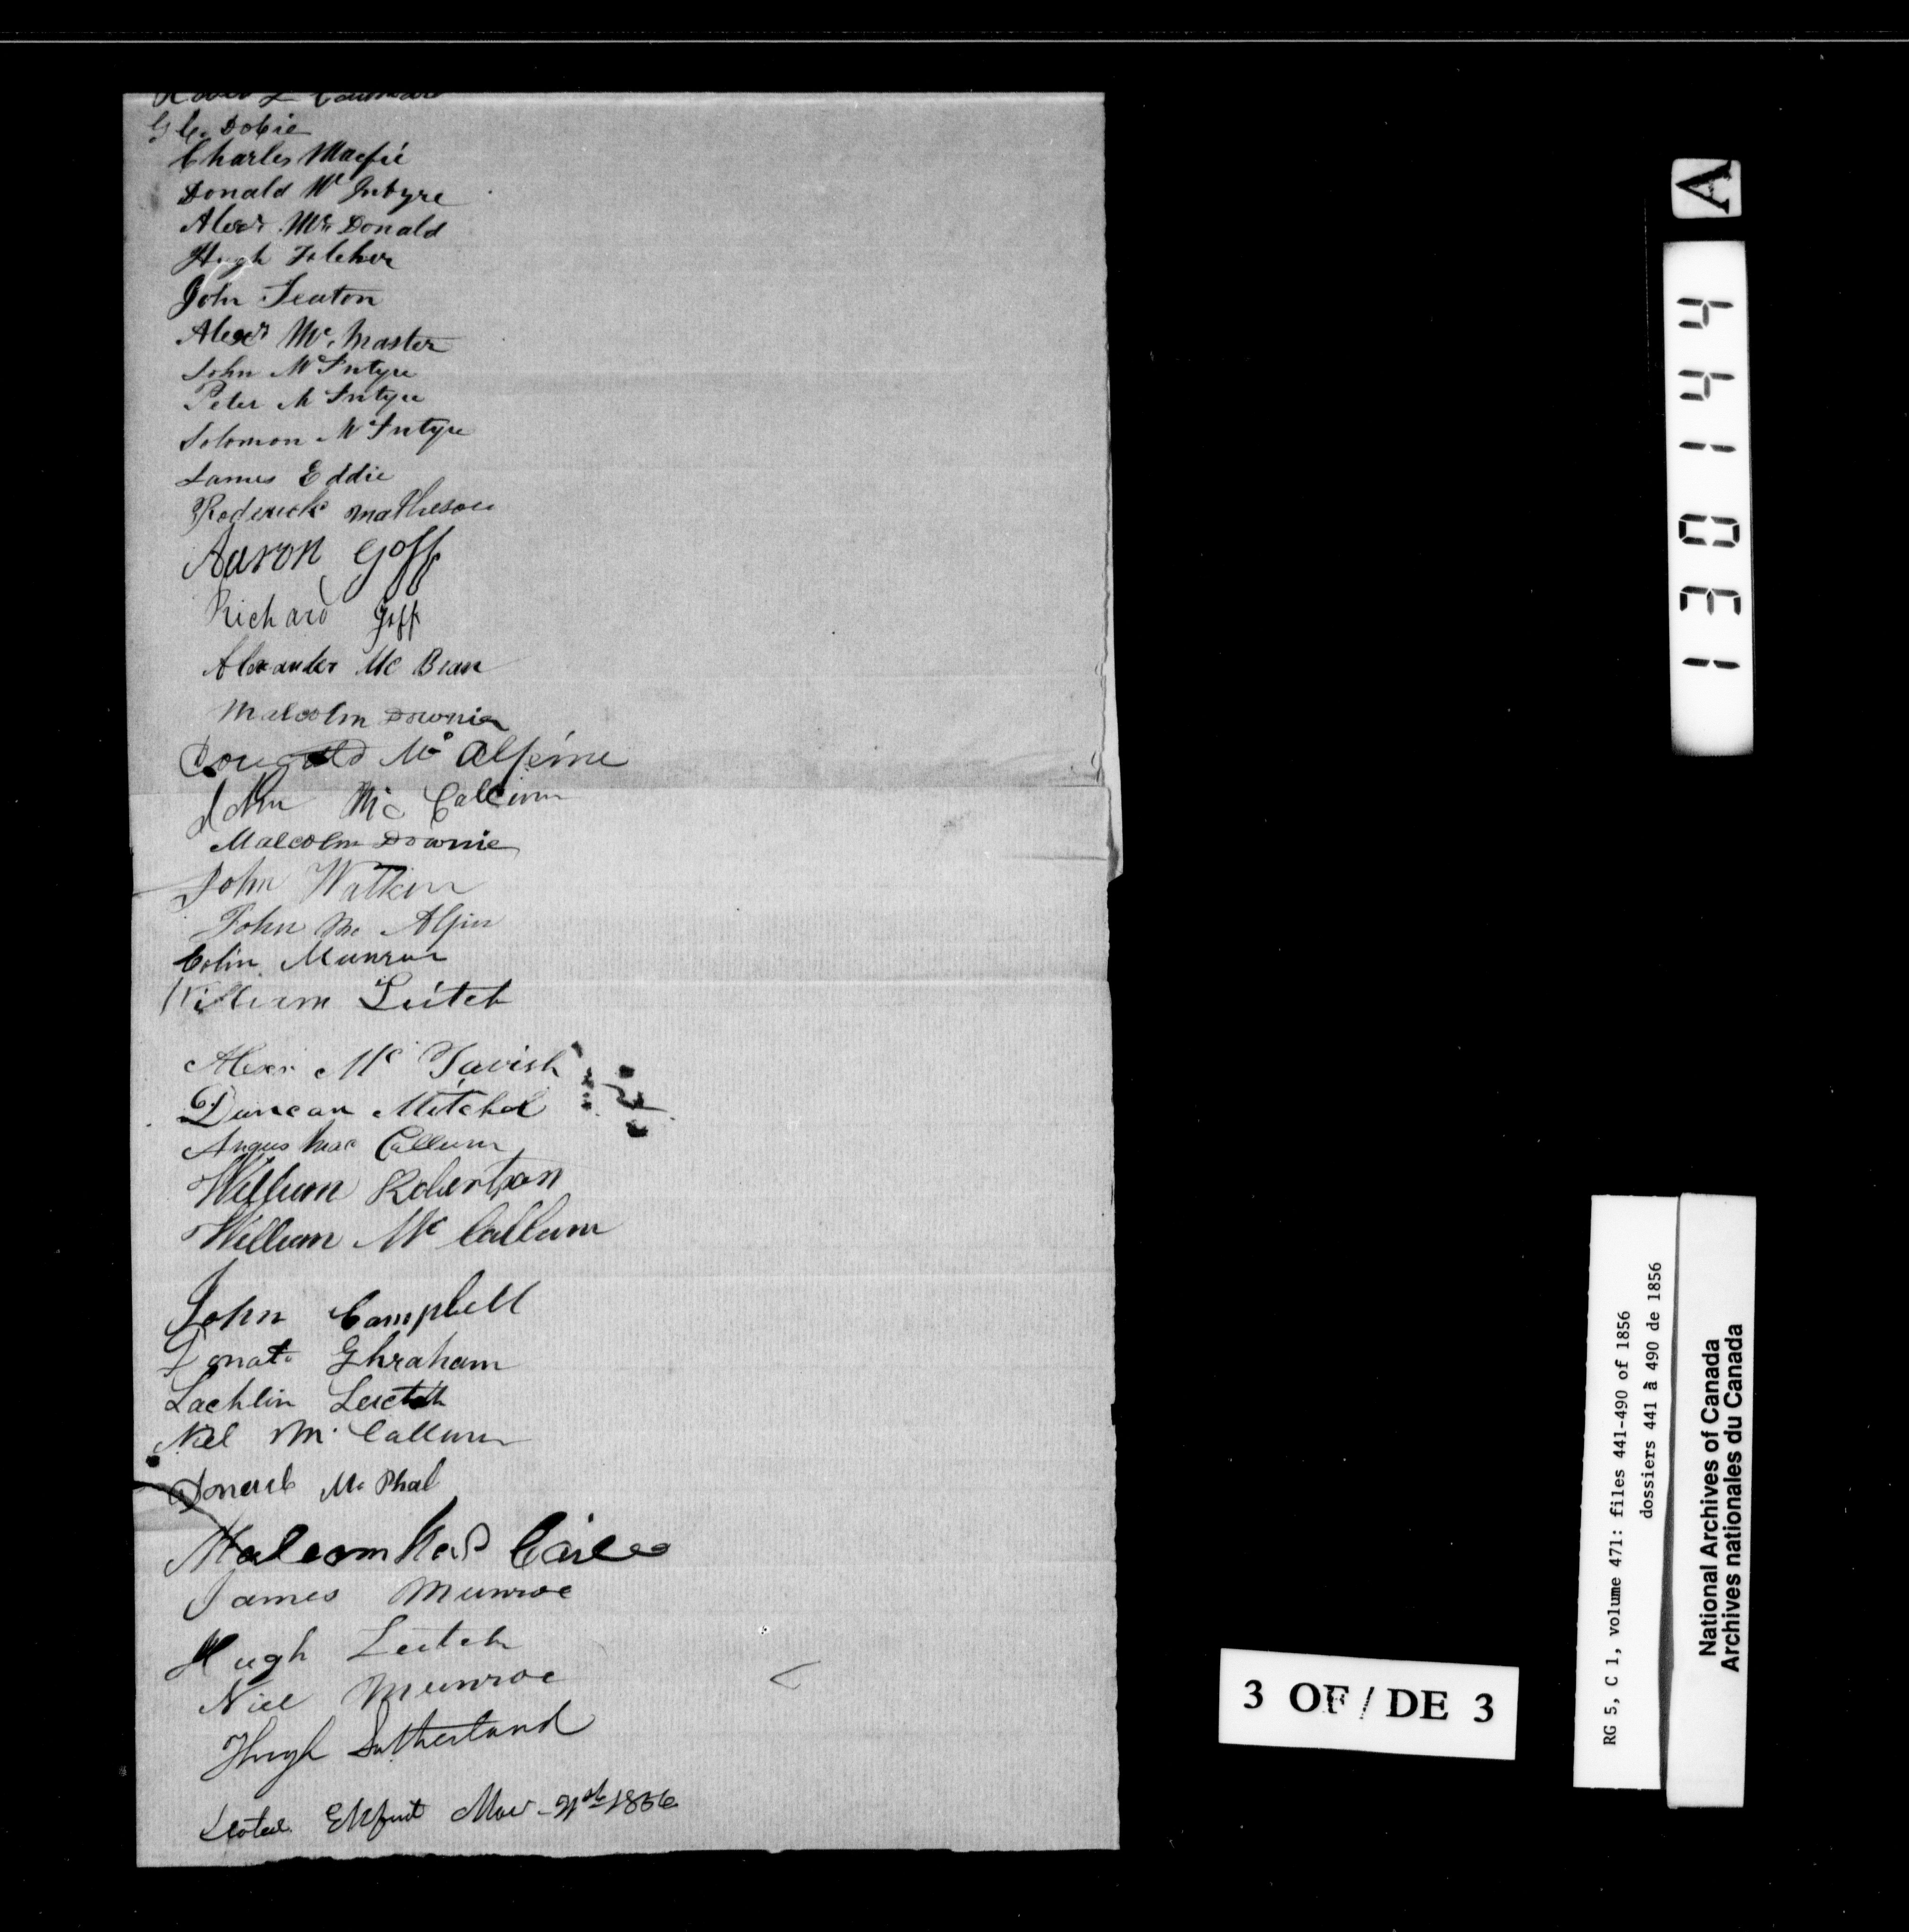 G C. Dobie
Charles Macfie
Donald Mc Intyre
Alexr. Mc Donald
Hugh Fletcher
John Seaton
Alexr Mc. Master
John Mc Intyre
Peter Mc Intyre
Solomon Mc Intyre
James Eddie
Roderick Matheson
Aaron Goff
Richard Goff
Alexander Mc Bean
Malcolm Downie
Dougald Mc Alpine
John Mc Callum
Malcolm Downie
John Watken
John Mc Alpin
Colin Munroe
William Leitch
Alexr Mc Tavish
Duncan Mitchel
Angus Mac Callum
William Robertson
William Mc Callum
John Campbell
Donald Ghraham
Lachlin Leitch
Niel Mc Callum
Mc Phal
Malcom
James Munroe
Hugh Leitch
Niel Munroe
Hugh Sutherland
Ekfrid 1856
A
131044
3 OF / DE 3
RG 5, C 1, volume 471: files 441-490 of 1856
dossiers 441 à 490 de 1856
National Archives of Canada
Archives nationales du Canada